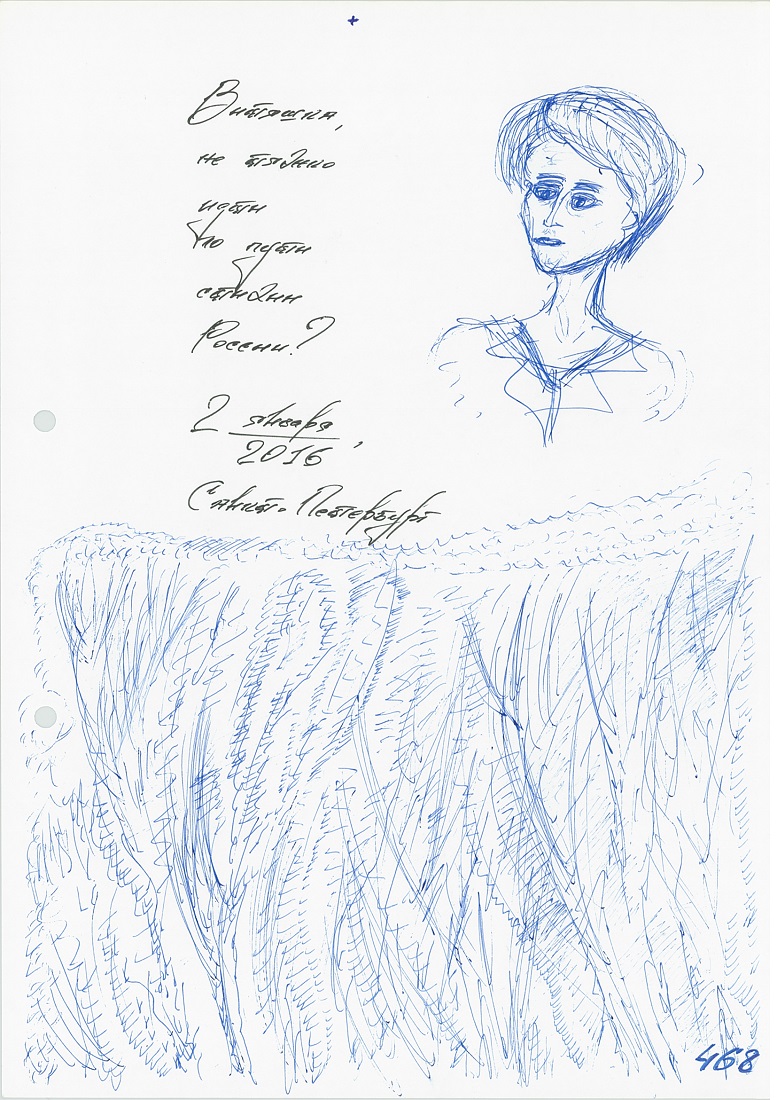 Витяшка,
не тяжко
идти
по пути
стези
России?
2 января
2016,
Санкт-Петербург
468